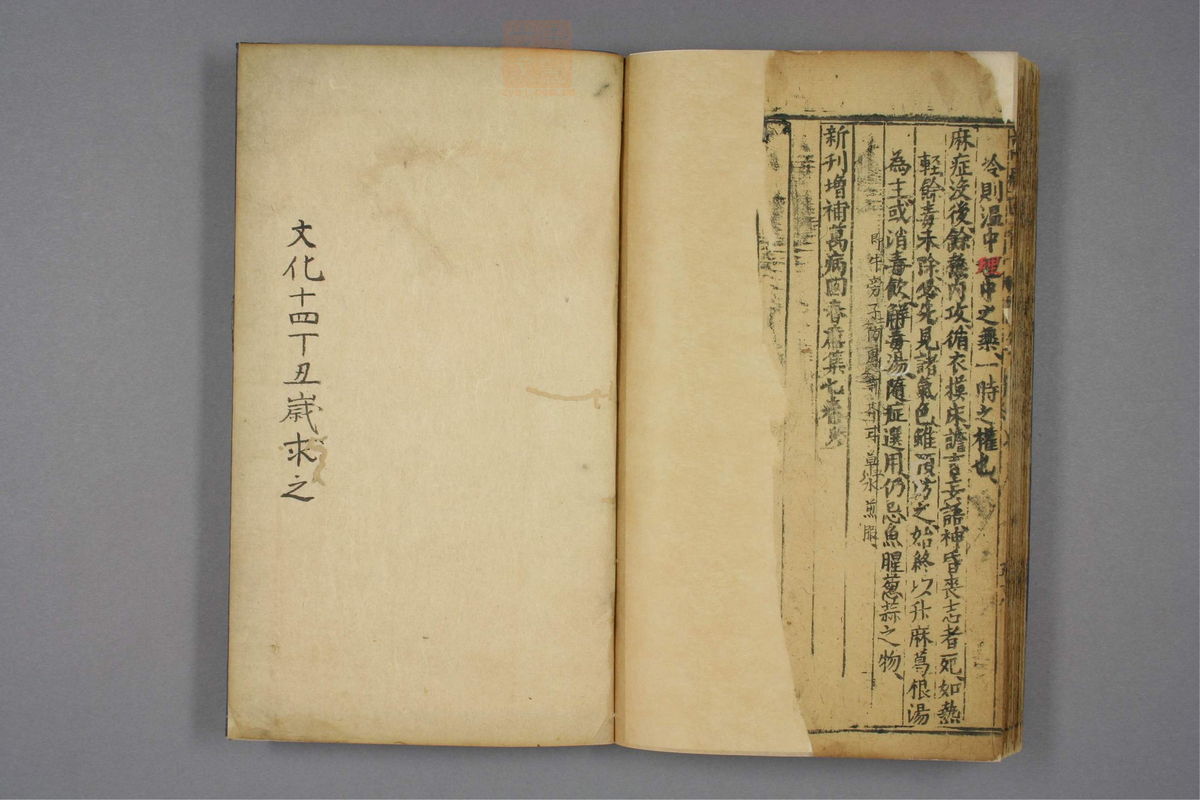 冷則温中理中之藥一時之權也
麻症沒後餘毒內攻循衣摸床譫言妄語神昏喪志者死如熱
輕餘毒未除必先見諸氣色雖預防之始終以升麻葛根湯
為主或消毒飲解毒湯隨症選用仍忌魚腥葱蒜之物
即牛蒡子防風荊芥甘草水煎服
新刊增補萬病回春原集七卷
文化十四丁丑歲求之